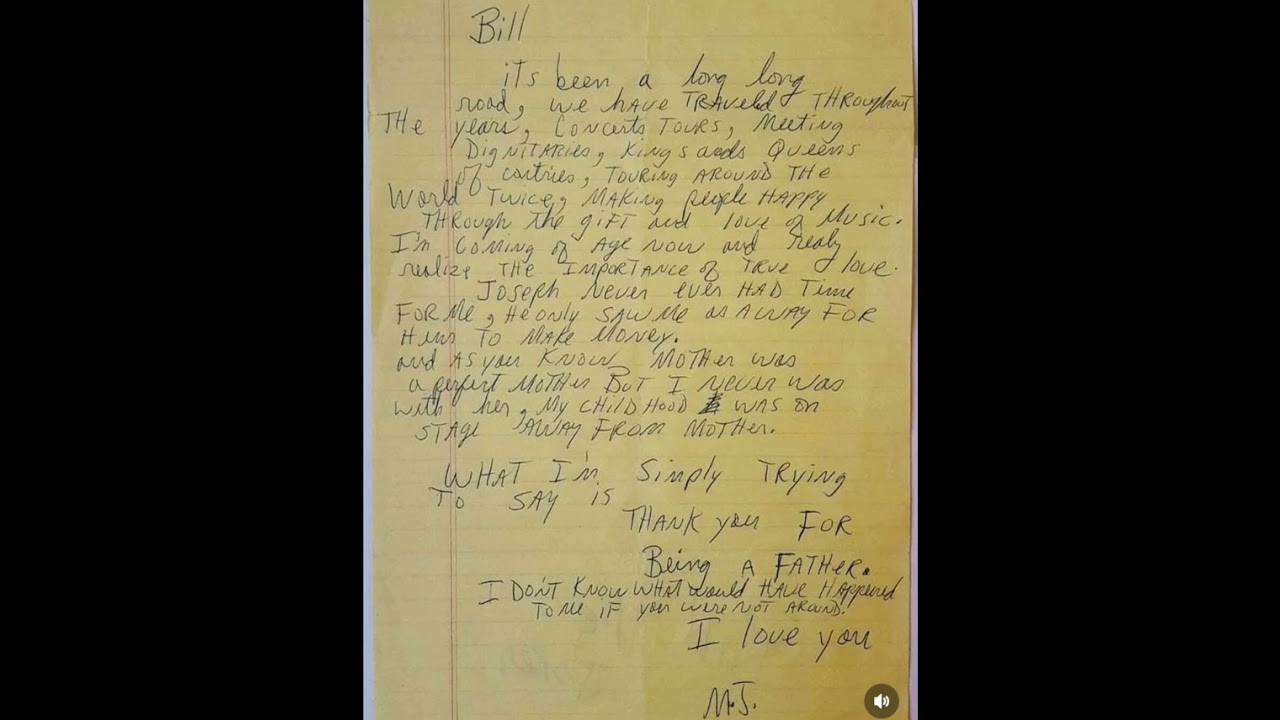 Bill
iTs been a long long
road, we have TRAveled THROughout
THe years, Concerts Tours, Meeting
DigNiTARies, Kings ands Queens
of contries, TOURING AROUND THe
World Twice, MAKing people HAppy
THROUGH the giFT and love of Music.
I'm coming of Age now and realy
realize THe IMPORTANCE of TRUE love.
Joseph Never ever HAD Time
FOR Me, He only SAW Me as AWAY FOR
Him To MAKe Money.
and AS you KNOW MOTHer was
a perfect MOTHer BuT I never was
with her, My CHildHOOD WAS on
STAGe AWAY FROM MOTHer.
WHAT I'm Simply TRying
To SAY iS
THANK you FOR
Being A FATHeR.
I DON'T KNOW WHAT would HAVe HAppened
To Me iF you were NOT AROUND.
I love you
M.J.